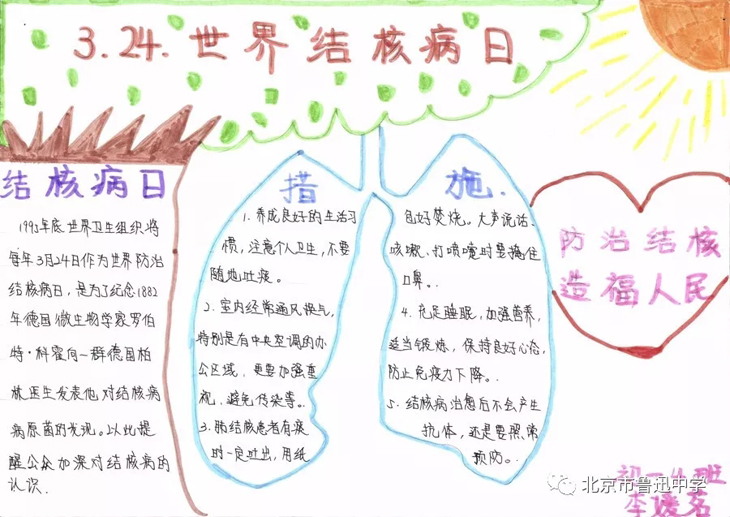 3.24.世界结核病日
结核病日
1995年底世界卫生组织将
每年3月24日作为世界防治
结核病日,是为了纪念1882
年德国微生物学家罗伯
特·科霍向一群德国柏
林医生发表他对结核病
病原菌的发现。以此提
醒公众加深对结核病的
认识.
措
1.养成良好的生活习
惯,注意个人卫生,不要
随地吐痰。
2.室内经常通风换气,
特别是有中央空调的办
公区域,更要加强重
视,避免传染等。
3.肺结核患者有痰
时一定吐出,用纸
施.
包好焚烧。大声说话、
咳嗽、打喷嚏时要掩住
口鼻。
4.充足睡眠,加强营养,
适当锻炼,保持良好心态,
防止免疫力下降。
5.结核病治愈后不会产生
抗体,还是要照常
预防。
防治结核
造福人民
初一4班
李媛茗
北京市鲁迅中学